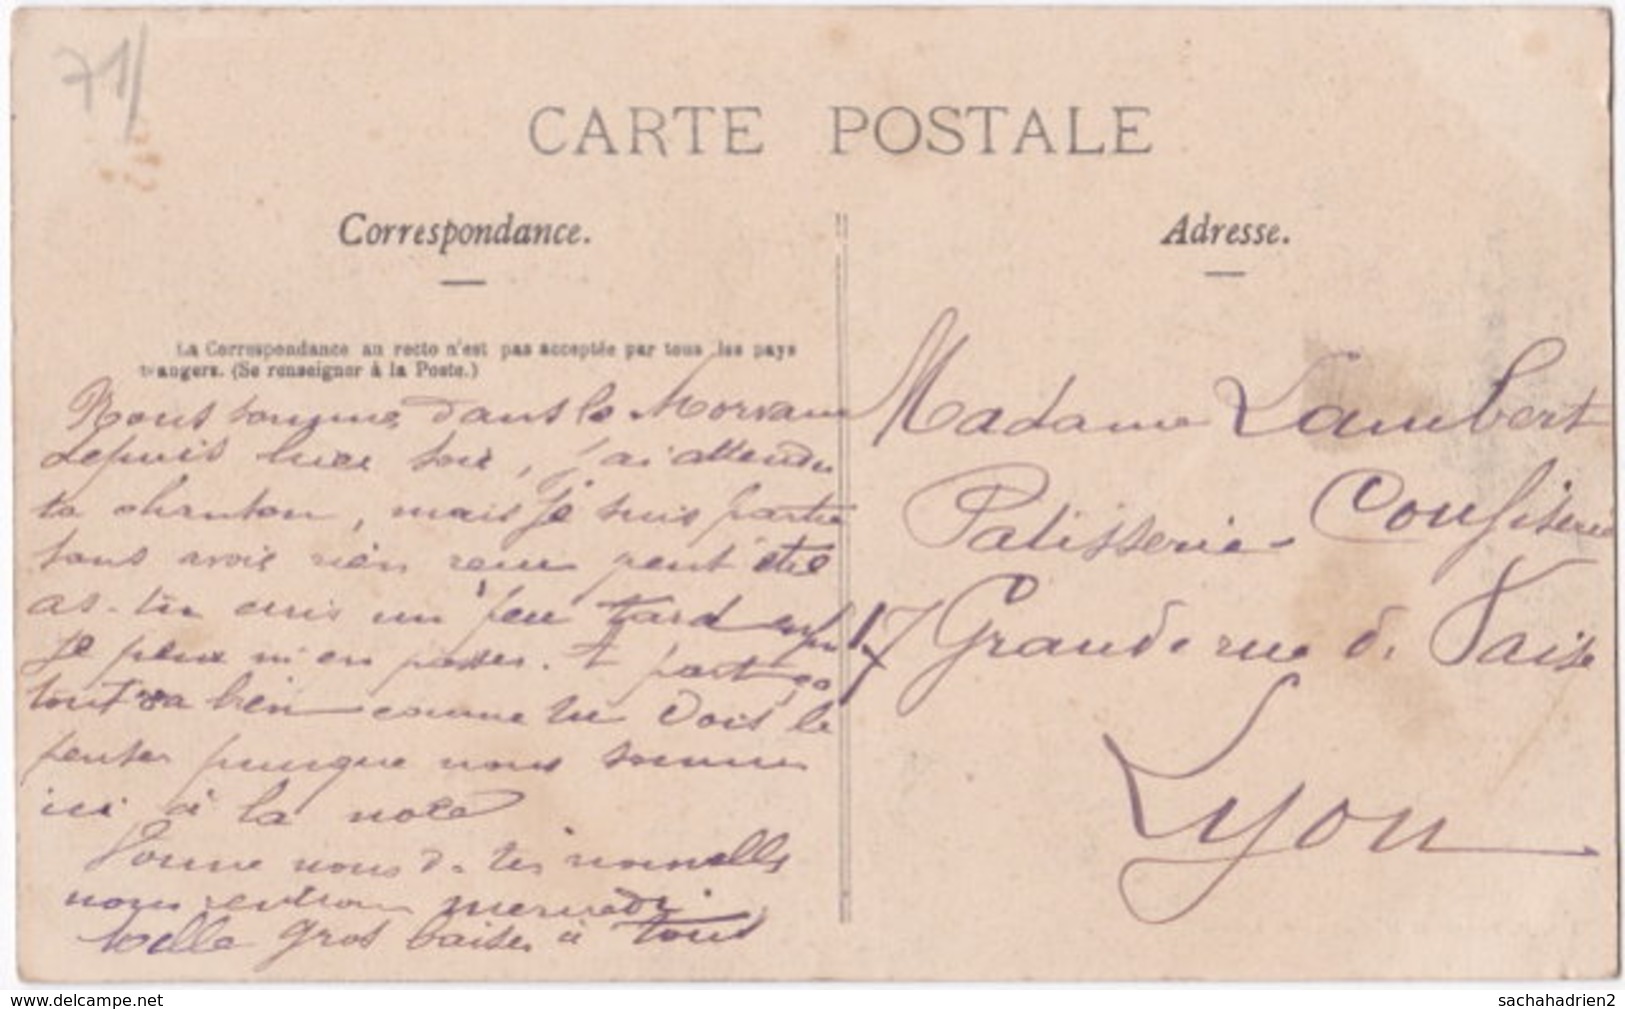 71/
CARTE POSTALE
Correspondance.
Adresse.
La Correspondance au recto n'est pas acceptée par tous les pays
étrangers. (Se renseigner à la Poste.)
Nous somme dans le Morvan
depuis hier soir, j'ai attendu
ta chanson, mais je suis partie
sans avoir rien recu peut être
as-tu ecris un peu tard enfin
je peux m'en passer. A part ça
tout va bien comme tu dois le
penser puisque nous sommes
ici à la noce
Donne nous de tes nouvelles
nous rentrons mercredi
gros baiser à tous
Madame Lambert
Patisserie - Confiserie
17 Grande rue de Vaise
Lyon
www.delcampe.net
sachahadrien2